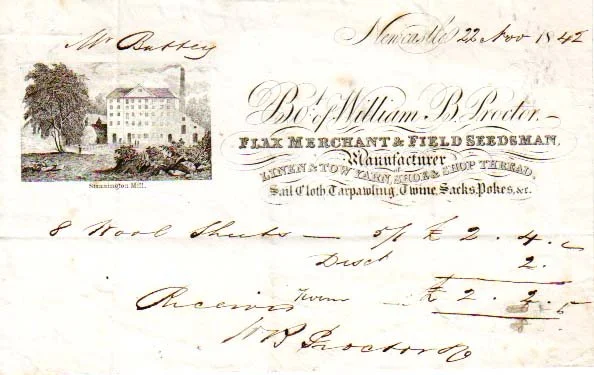 Newcastle 22 Nov 1842
Mr Battey
Bot. of William B. Proctor.
FLAX MERCHANT & FIELD SEEDSMAN,
Manufacturer
of
LINEN & TOW YARN, SHOE & SHOP THREAD,
Sail Cloth Tarpawling, Twine, Sacks, Pokes, &c.
Stannington Mill.
8 Wool Sheets — 5/ £ 2 . 4 .
Disct 2 .
Received £ 2 . 2 .
W B Proctor